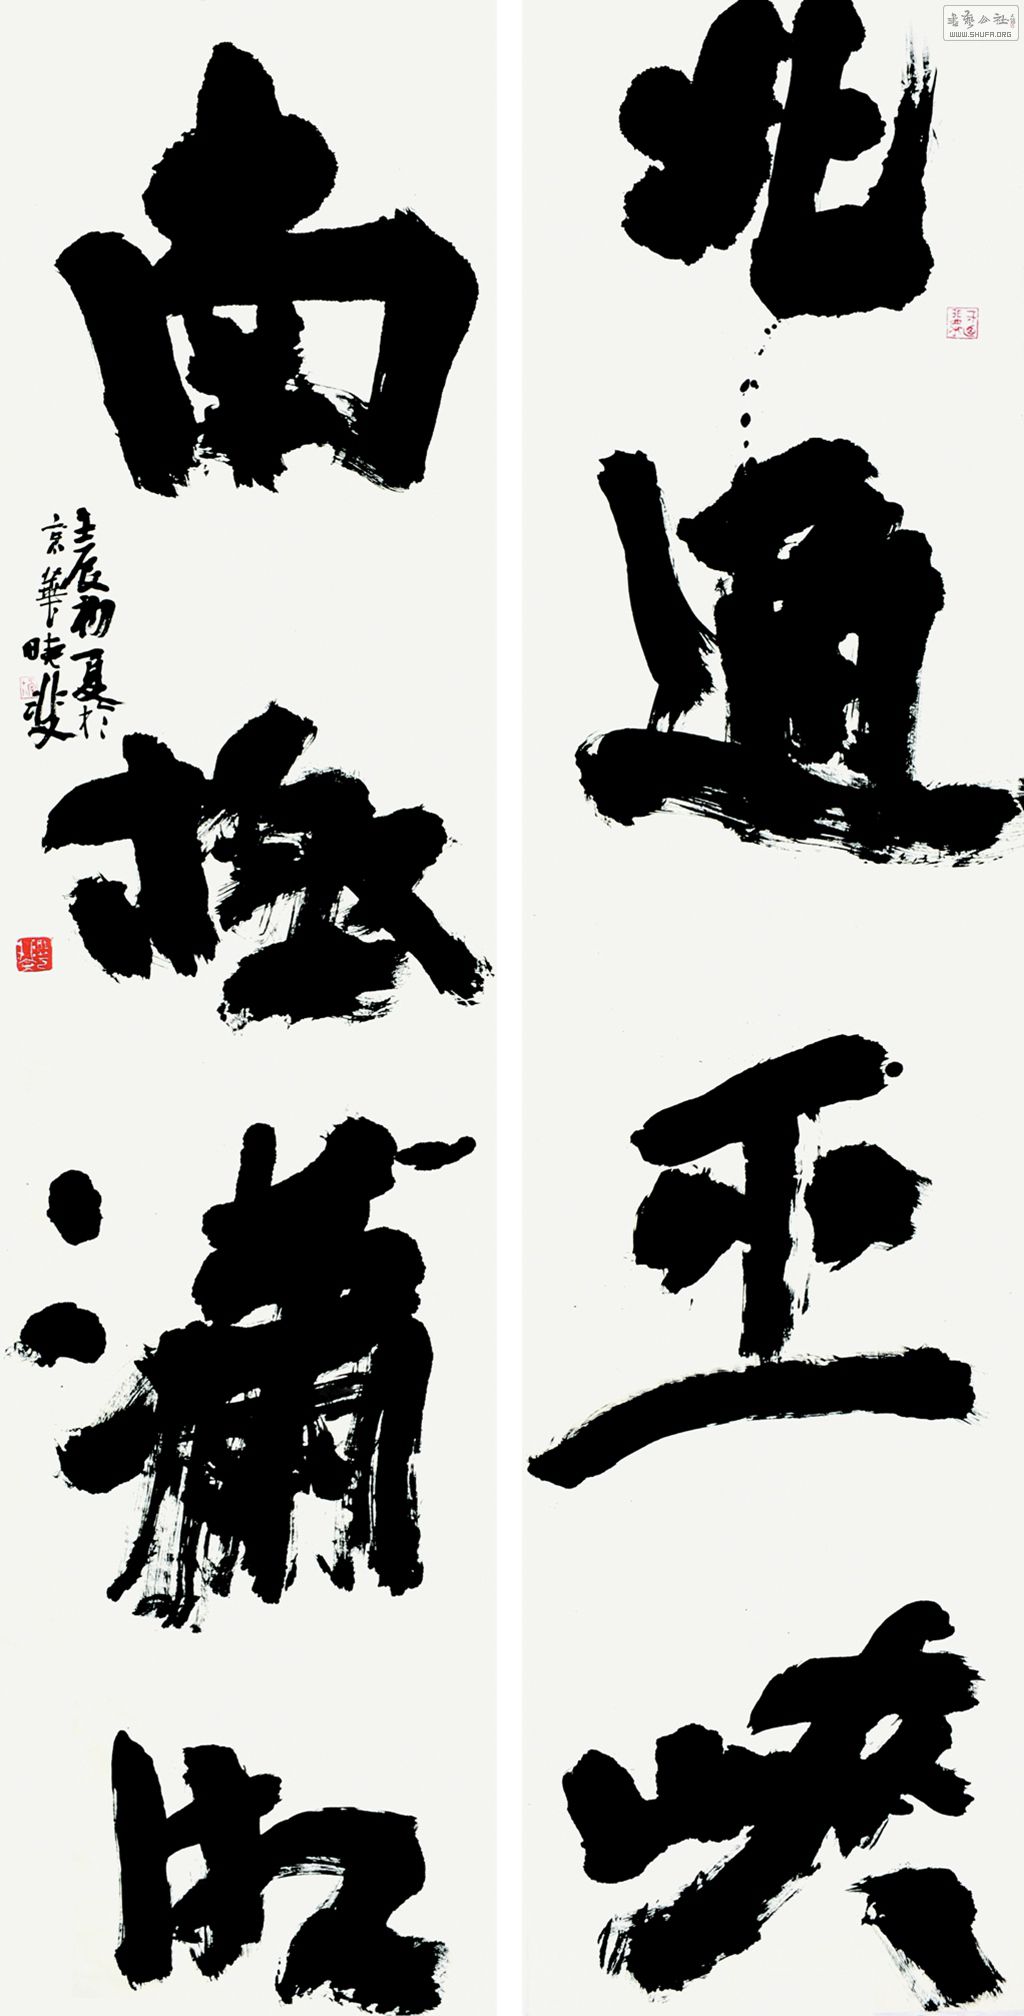 北通巫峡
南极潇湘
壬辰初夏於
京華曉斐
書藝公社
WWW.SHUFA.ORG